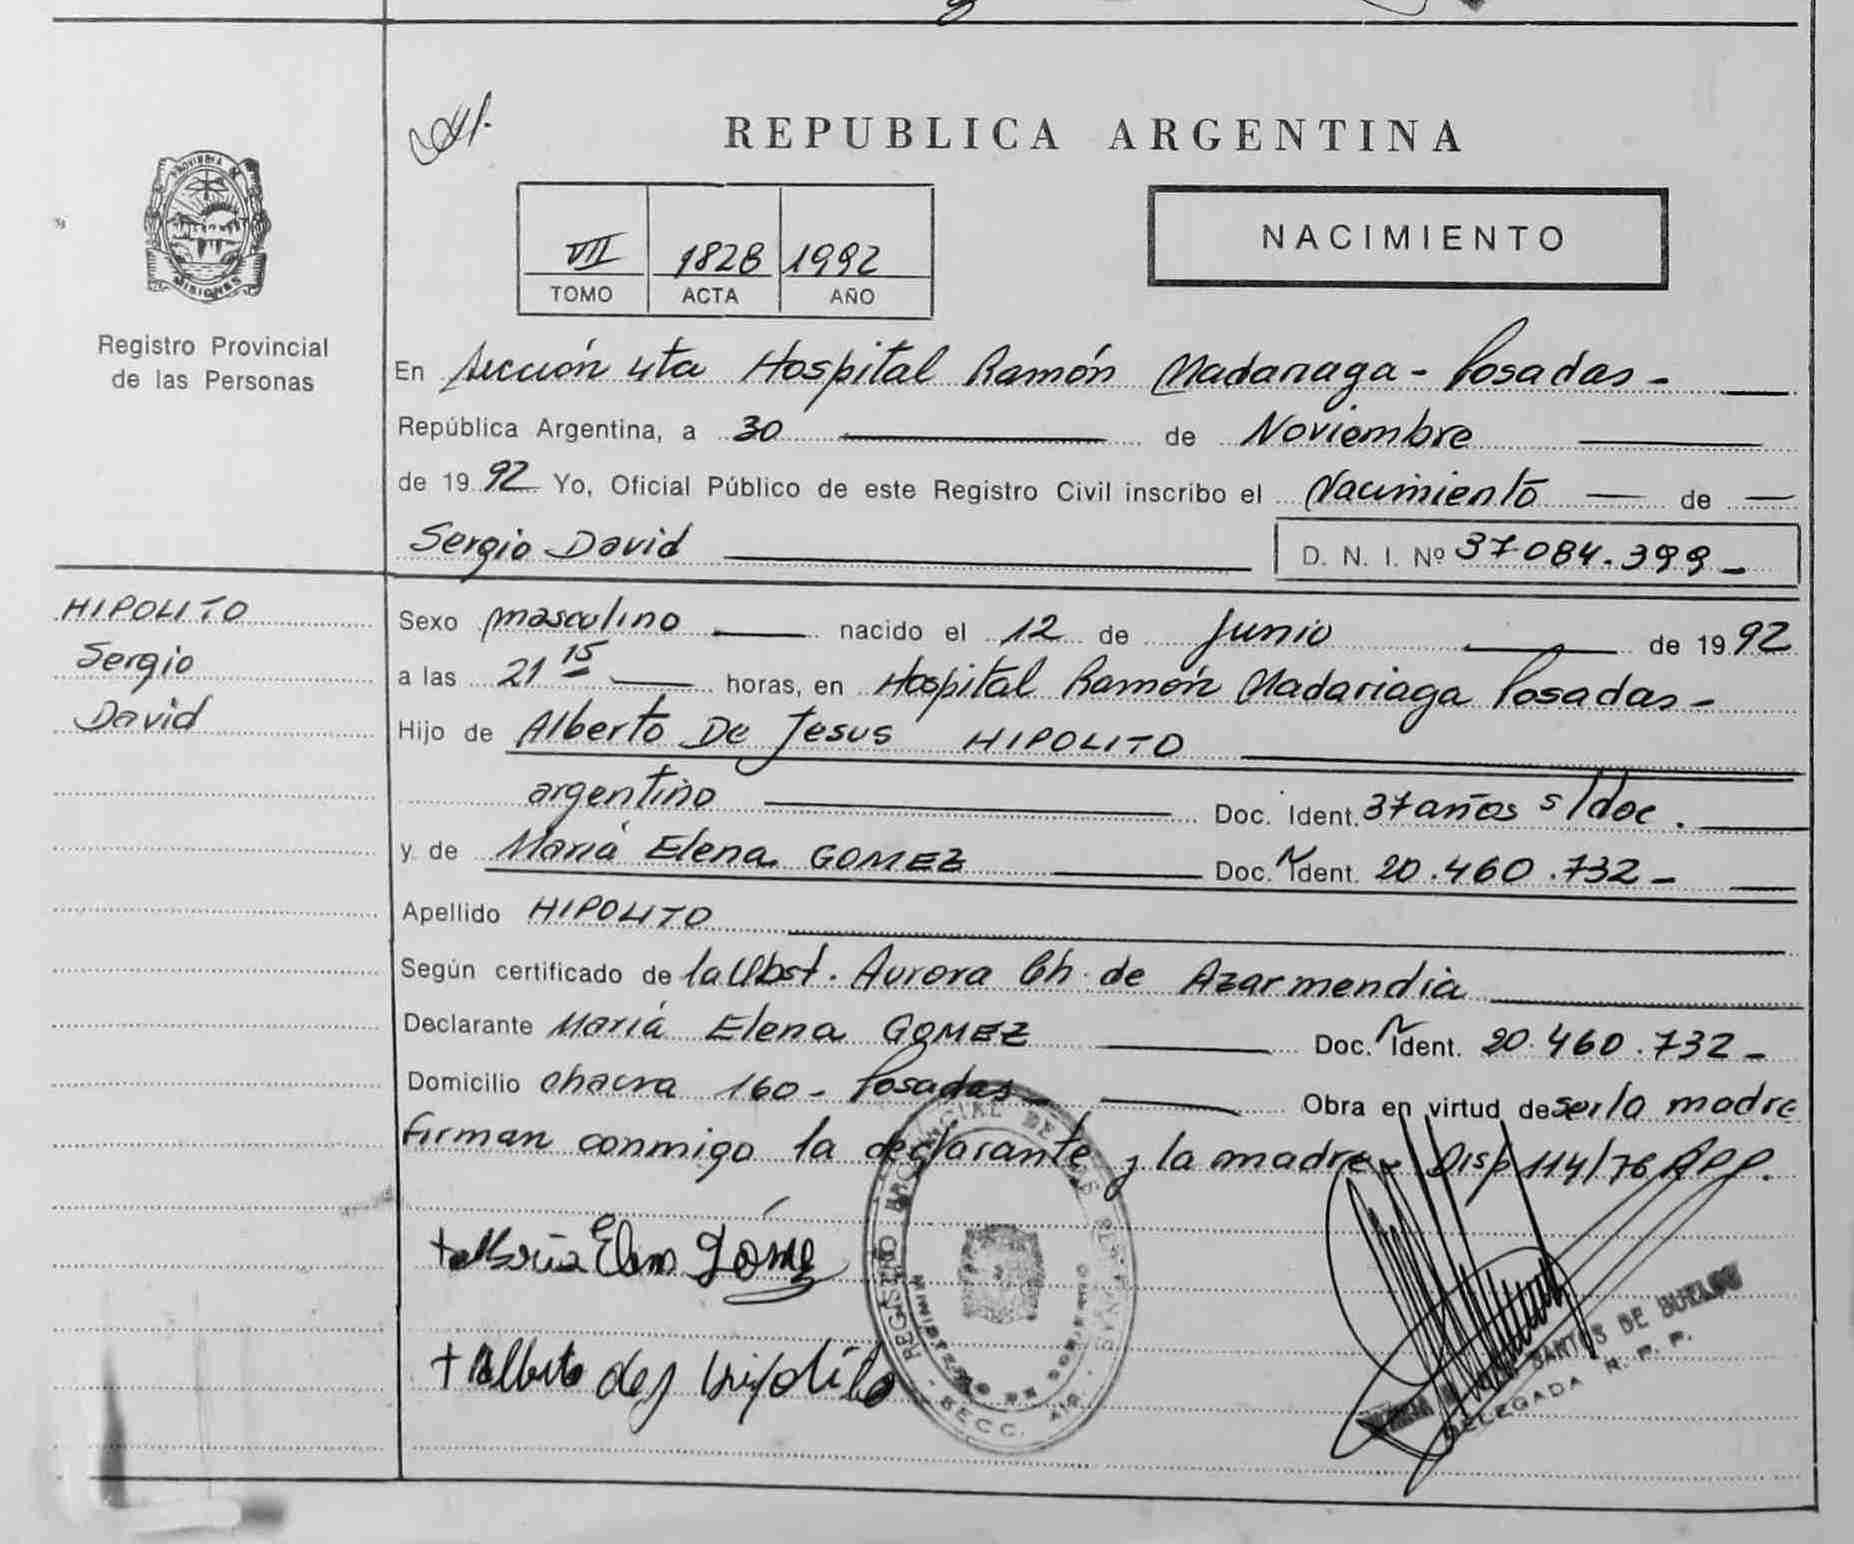 REPUBLICA ARGENTINA
PROVINCIA DE
MISIONES
Registro Provincial
de las Personas
VII 1828 1992
TOMO ACTA AÑO
NACIMIENTO
En Sección 4ta Hospital Ramón Madariaga - Posadas -
República Argentina, a 30 de Noviembre
de 1992 Yo, Oficial Público de este Registro Civil inscribo el Nacimiento de
Sergio David D. N. I. Nº 37.084.399 -
HIPOLITO
Sergio
David
Sexo masculino nacido el 12 de Junio de 1992
a las 21 15 horas, en Hospital Ramón Madariaga Posadas -
Hijo de Alberto De Jesus HIPOLITO
argentino Doc. Ident. 37 años s/doc.
y de María Elena GOMEZ Doc. N Ident. 20.460.732 -
Apellido HIPOLITO
Según certificado de la Obst. Aurora Ch. de Azarmendia
Declarante María Elena GOMEZ Doc. N Ident. 20.460.732 -
Domicilio chacra 160 - Posadas Obra en virtud de ser la madre
Firman conmigo la declarante y la madre - Disp 114/76 RPP.
+ María Elena Gómez
+ Alberto de J Hipólito
REGISTRO PROVINCIAL DE LAS PERSONAS
MINISTERIO DE GOBIERNO
SECC. 4ta
SANTOS DE BUENOS
DELEGADA R. P. P.